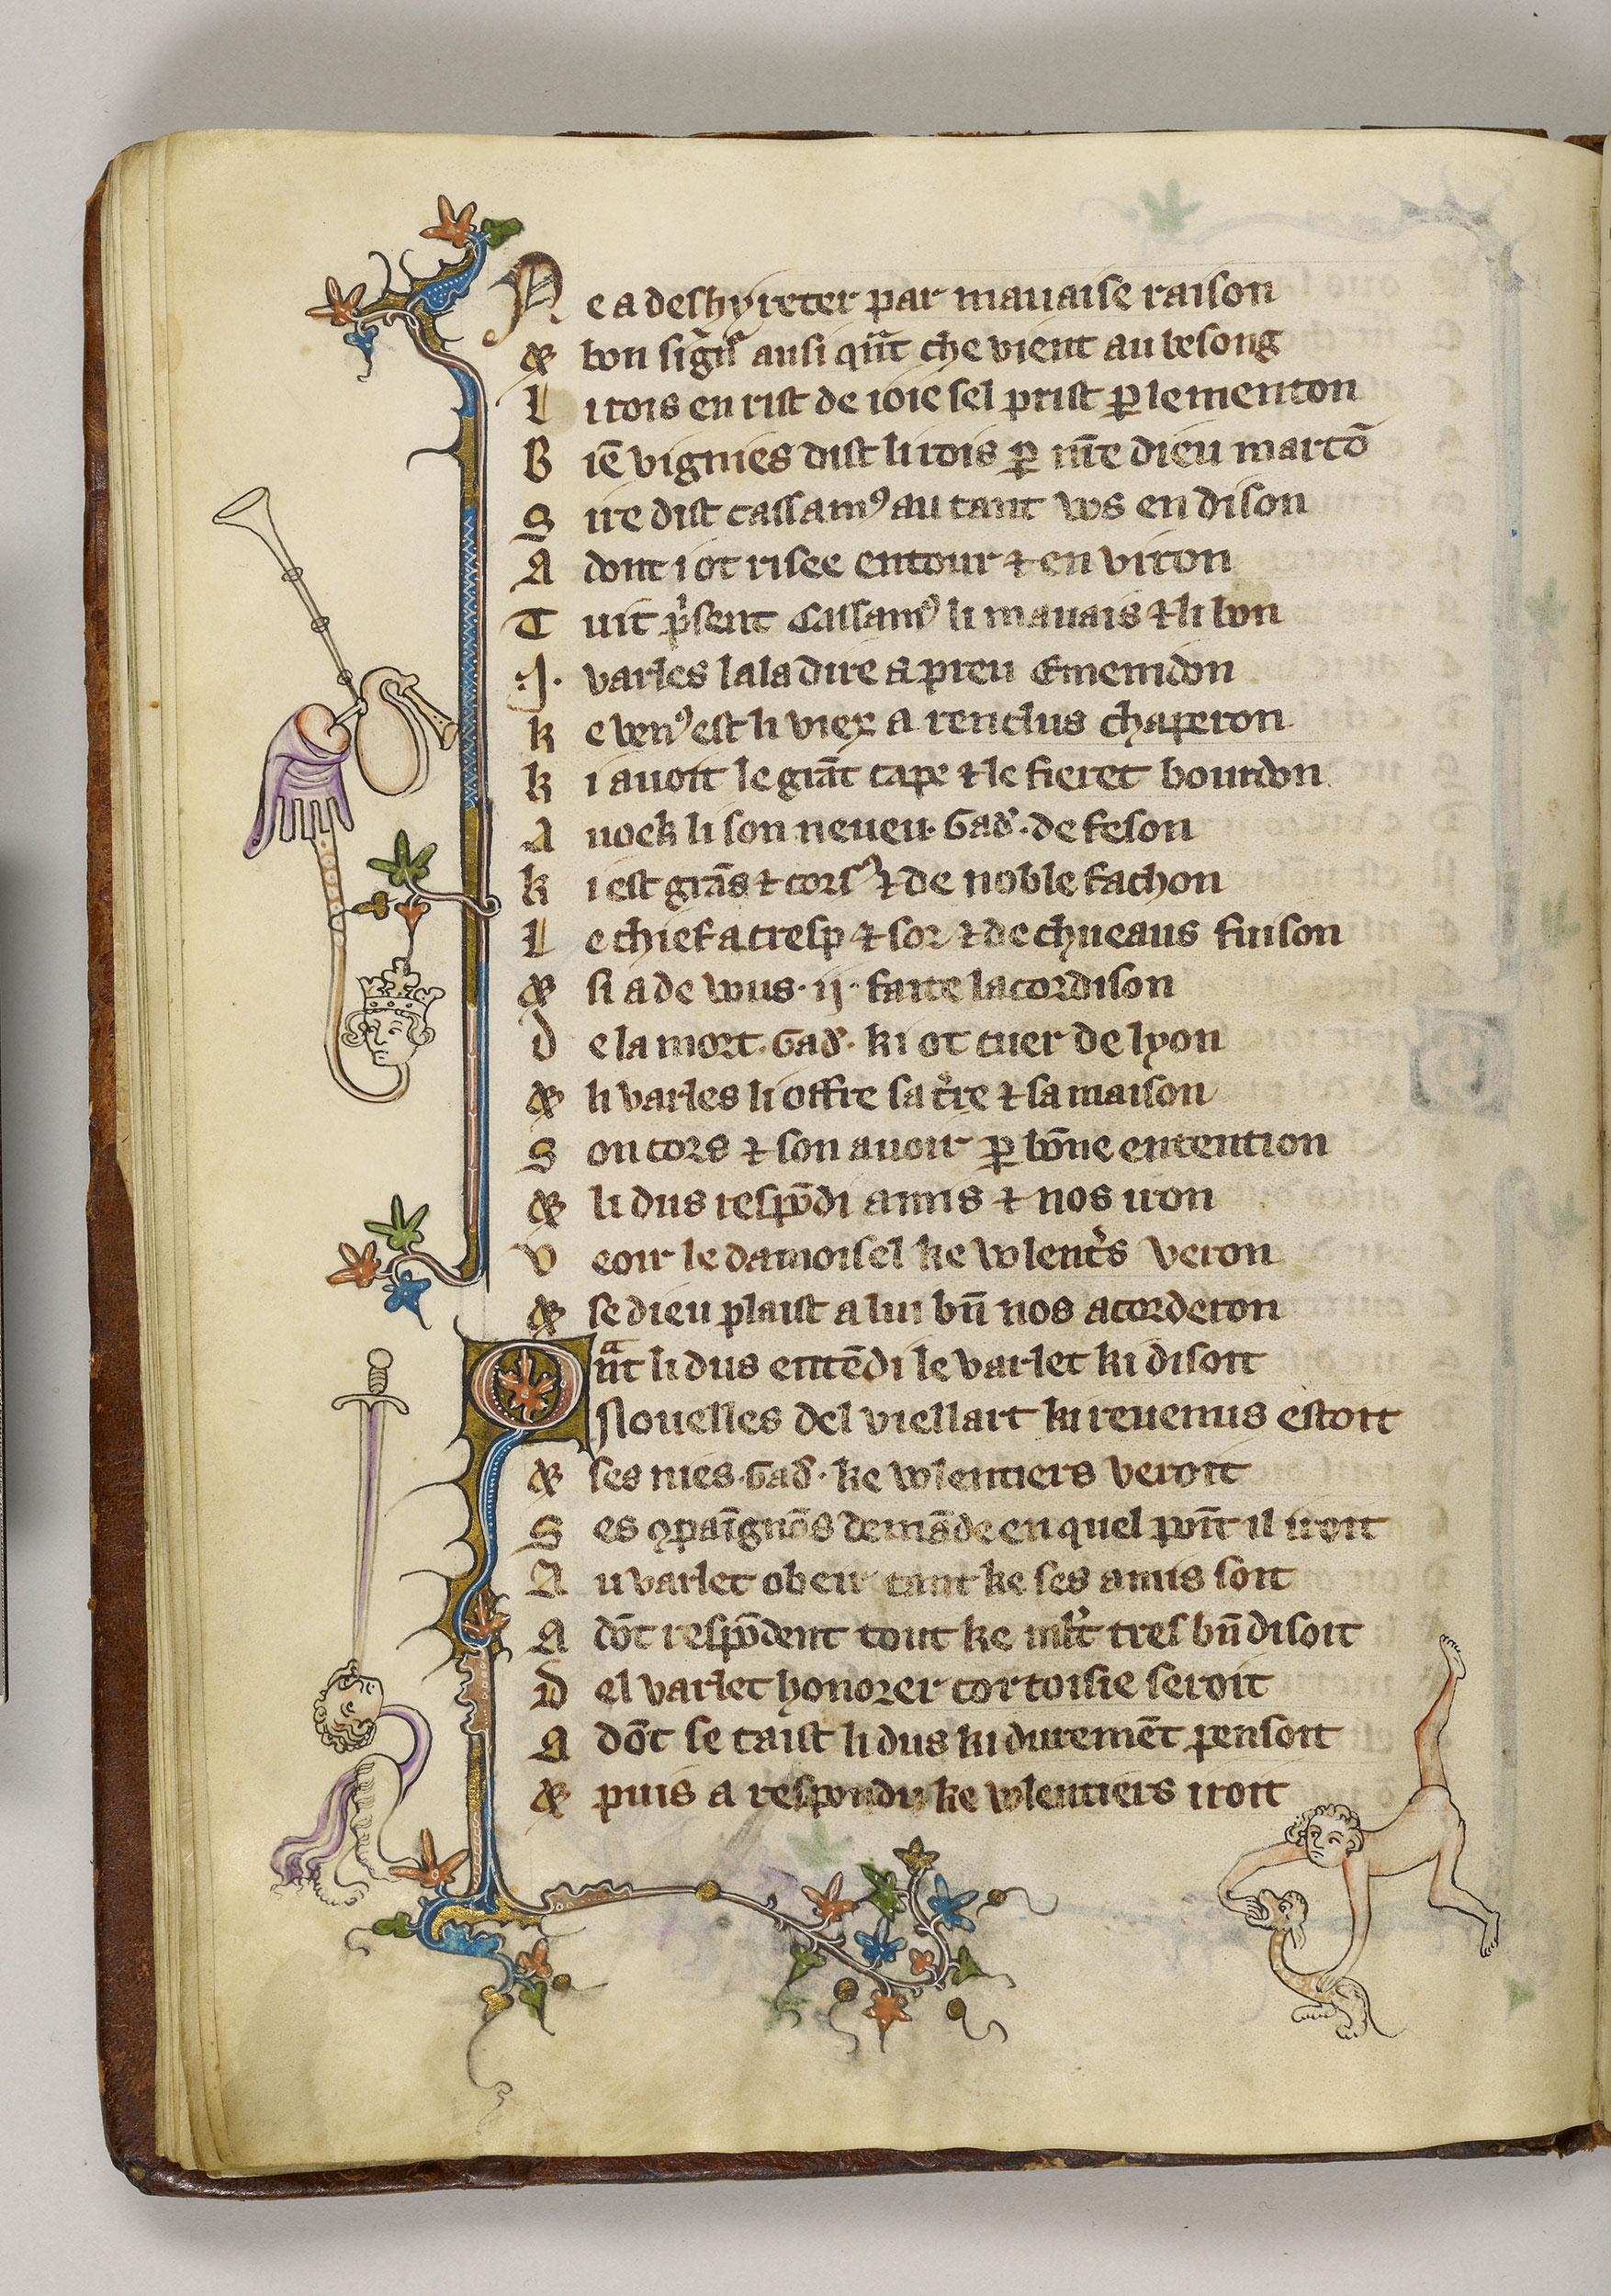 Ne a deshyreter par mauaise raison
Et bon signr̃ ausi qñt che vient au besong
Li rois en rist de ioie sel prist ꝑ le menton
Biẽ vignies dist li rois ꝑ nr̃e dieu martõ
Sire dist cassamꝰ au tant vos en dison
Adont i ot risee entour ⁊ en viron
Tuit p̃sent Cassamꝰ li mauais ⁊ li bon
.I. varles lala dire a preu Emenidon
Ke venꝰ est li viex a renclus chaperon
Ki auoit le grãt cape ⁊ le fieret bourdon
Auoek li son neueu. Gad᷒. de feson
Ki est grãs ⁊ corsꝰ ⁊ de noble fachon
Le chief a cresp ⁊ sor ⁊ de chueaus fuison
Et si a de vous .ij. faite lacordison
De la mort .Gad᷒. ki ot cuer de lyon
Et li varles li offre sa t̾re ⁊ sa maison
Son cors ⁊ son auoir ꝑ bõne entention
Et li dus respõdi amis ⁊ nos iron
Veoir le damoisel ke volent̾s veron
Et se dieu plaist a lui bñ nos acorderon
Qñt li dus entẽdi le varlet ki disoit
Nouelles del viellart ki reuenus estoit
Et ses nies .Gad᷒. ke volentiers veroit
Ses ꝯpaĩgnõs demãde en quel poĩt il iroit
Au varlet obeir tant ke ses amis soit
Adõt respõdent tout ke ml̃t tres bñ disoit
Del varlet honorer cortoisie seroit
Adõt se taist li dus ki duremẽt pensoit
Et puis a respondu ke volentiers iroit